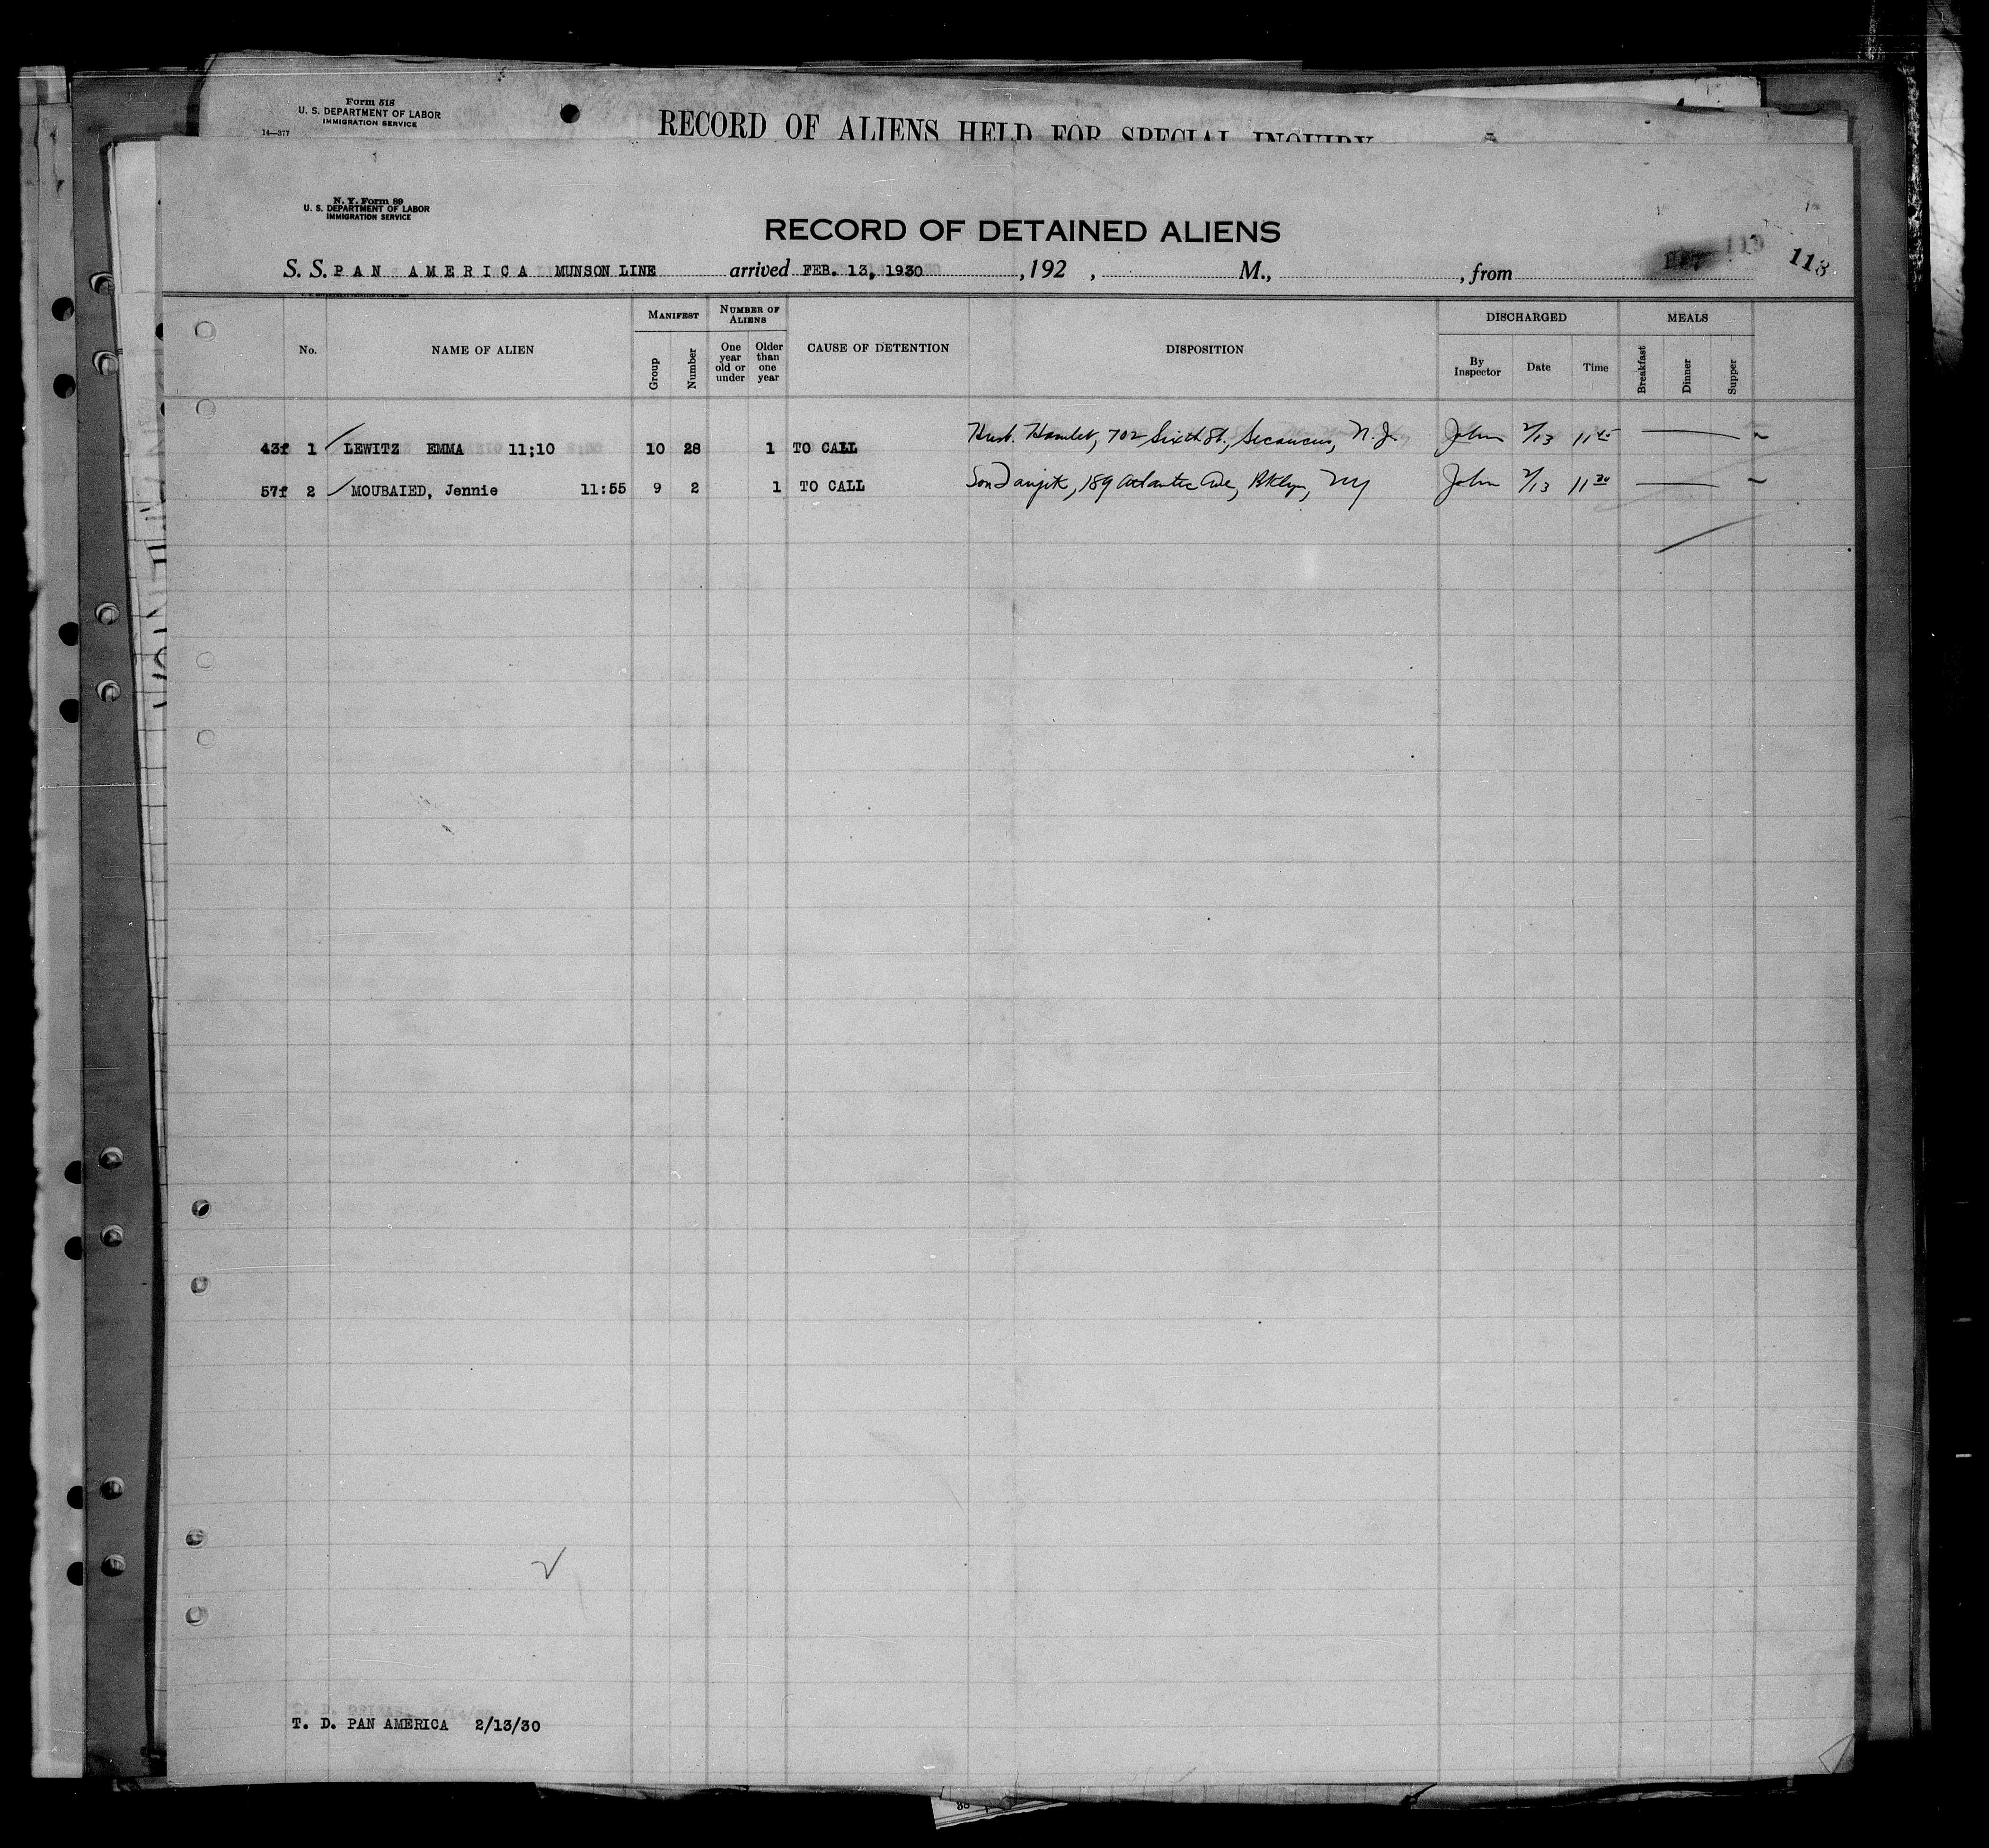 Form 518
U. S. DEPARTMENT OF LABOR
IMMIGRATION SERVICE
14—377
RECORD OF ALIENS HELD FOR SPECIAL INQUIRY
N. Y. Form 89
U. S. DEPARTMENT OF LABOR
IMMIGRATION SERVICE
RECORD OF DETAINED ALIENS
S. S. PAN AMERICA MUNSON LINE arrived FEB. 13, 1930, 192 , M., , from 118
No. NAME OF ALIEN MANIFEST Group Number NUMBER OF ALIENS One year old or under Older than one year CAUSE OF DETENTION DISPOSITION DISCHARGED By Inspector Date Time MEALS Breakfast Dinner Supper
43f 1 LEWITZ EMMA 11:10 10 28 1 TO CALL Husb. Hamlet, 702 Sixth St., Secaucus, N. J. John 2/13 11
57f 2 MOUBAIED, Jennie 11:55 9 2 1 TO CALL Son 189 Atlantic Ave, Bklyn, NY John 2/13 11
T. D. PAN AMERICA 2/13/30